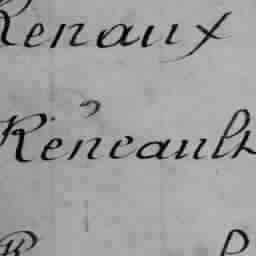 Renaux
Réneault